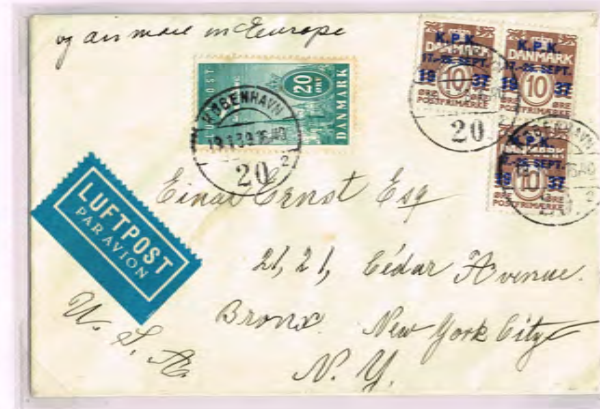 og air mail in Europe
LUFTPOST
20
ØRE
DANMARK
KØBENHAVN
20
2
K.P.K.
DANMARK
17.-26. SEPT.
19 37
10
ØRE
POSTFRIMÆRKE
K.P.K.
DANMARK
17.-26. SEPT.
19 37
10
ØRE
POSTFRIMÆRKE
20
K.P.K.
DANMARK
17.-26. SEPT.
19 37
10
ØRE
POSTFRIMÆRKE
LUFTPOST
PAR AVION
Einar Ernst Esq
21, 21, Cedar Avenue.
Bronx. New York City
N. Y.
U. S. A.